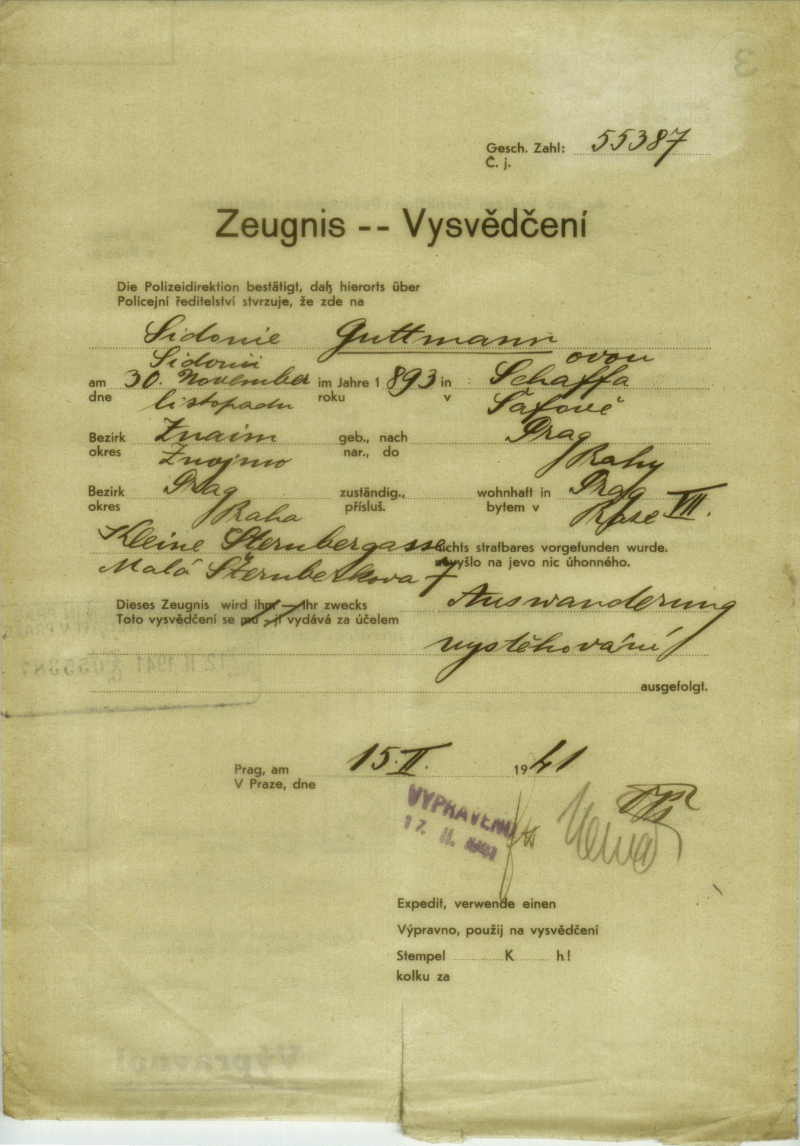 Gesch. Zahl: 55387
Č. j.
Zeugnis -- Vysvědčení
Die Polizeidirektion bestätigt, daß hierorts über
Policejní ředitelství stvrzuje, že zde na
Sidonie Guttmann
Sidonii ovou
am 30. November im Jahre 1 893 in Schaffa
dne listopadu roku v Šafově
Bezirk Znaim geb., nach Prag
okres Znojmo nar., do Prahy
Bezirk Prag zuständig., wohnhaft in Prag
okres Praha přísluš. bytem v Praze VII.
Kleine Sternbergasse nichts strafbares vorgefunden wurde.
Malá Šternberkova 7 nevyšlo na jevo nic úhonného.
Dieses Zeugnis wird ihm — Ihr zwecks Auswanderung
Toto vysvědčení se mu — jí vydává za účelem
vystěhování
ausgefolgt.
Prag, am 15. II. 1941
V Praze, dne
VYPRAVENO
17. II. 1941
Expedit, verwende einen
Výpravno, použij na vysvědčení
Stempel K h!
kolku za